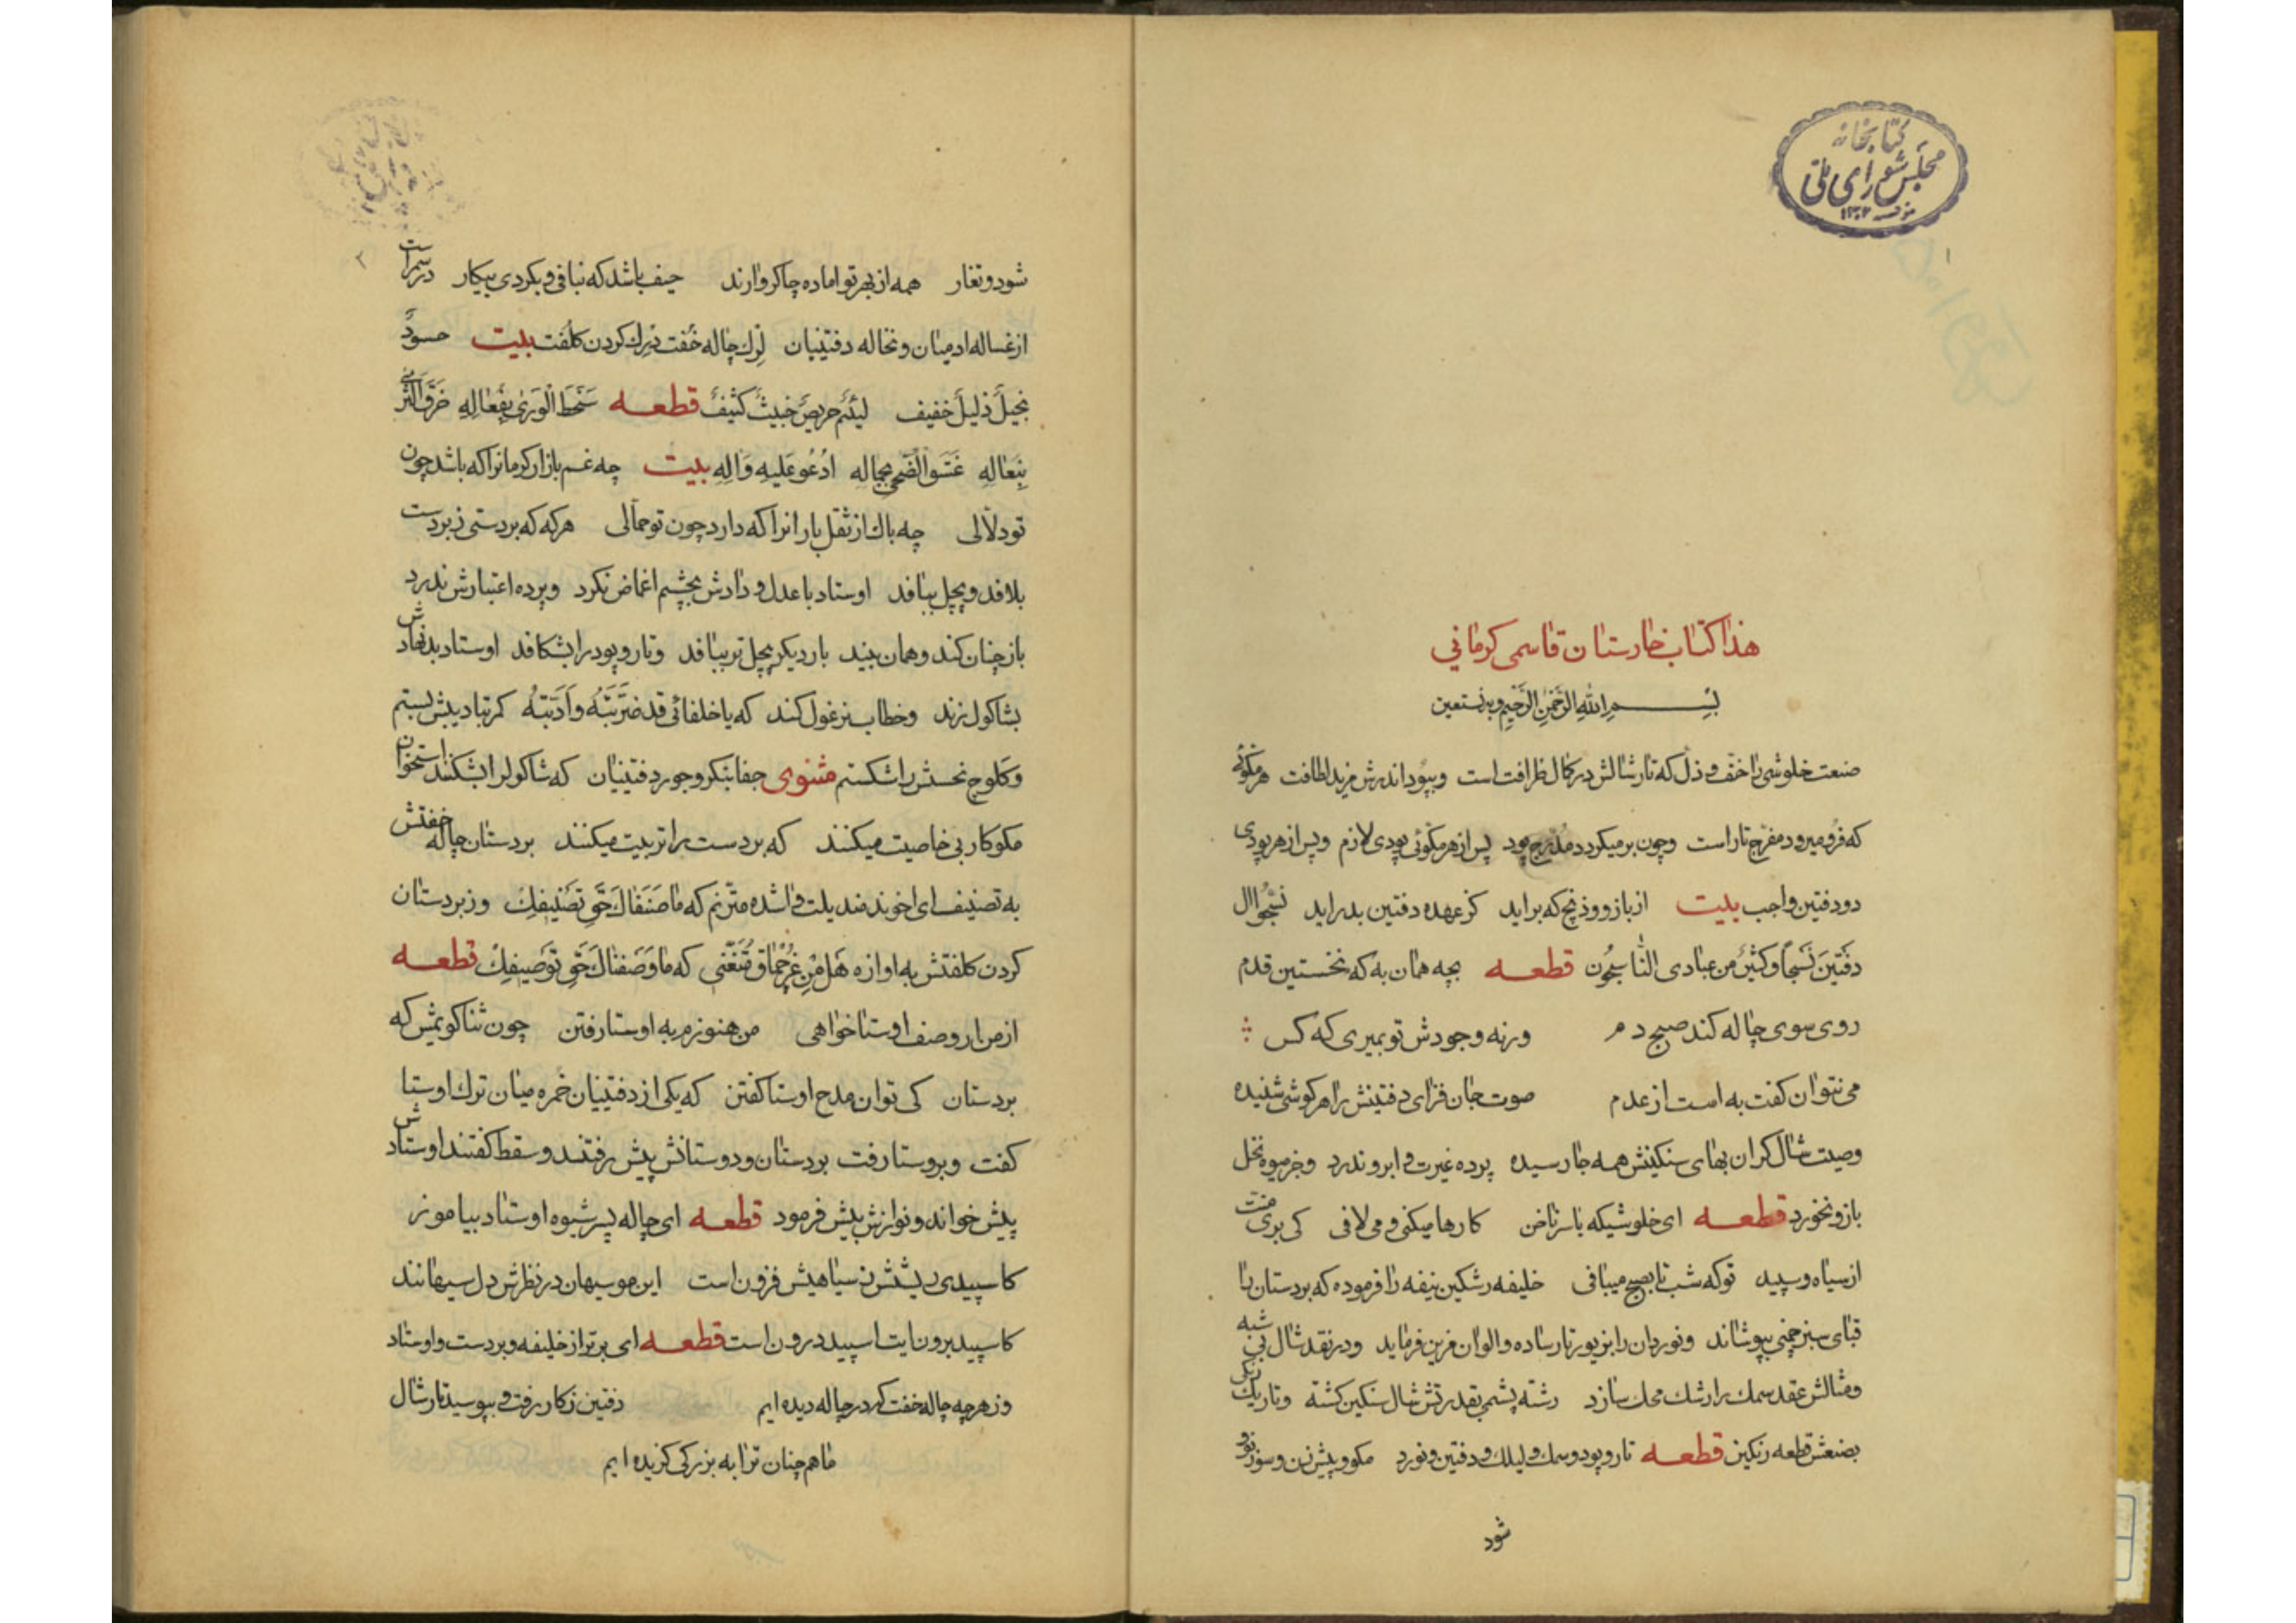 کتابخانه
مجلس شورای ملی
۱۳۰۲
۱
هذا کتاب خارستان قاسمی کرمانی
بسم الله الرحمن الرحیم وبه نستعین
صنعت خلوشی را خفت و ذل که تار شالش در کمال ظرافت است وبپود اندرش مزید لطافت هر مکوئی
که فرو میرود مفرح تار است وچون برمیگردد مدرج پود پس از هر مکوئی پودی لازم وپس از هر پودی
دو دفتین واجب بیت از بازو و ذنج که براید کز عهده دفتین بدراید نسجوا ال
دفتین نسجاً وکثیر من عبادی النّاسجون قطعه بچه همان به که نخستین قدم
روی سوی چاله کند صبح دم ورنه وجودش تو بمیری که کس
می نتوان گفت به است از عدم صوت جان فزای دفتینش را هر گوشی شنیده
وصیت شال گران بهای سنگینش همه جا رسیده پرده غیرت و ابرو ندرد وجز میوه نخل
بازو نخورد قطعه ای خلوشیکه با سر ناخن کارها میکنی و می لافی کی بری منت
از سیاه و سپید توکه شب تا بصبح میبافی خلیفه رشکین نیفه را فرموده که بردستان را
قبای سبز چمنی بپوشاند ونوردان را بزیور تار ساده و الوان مزین فرماید ودر نقد شال بی شبه
ومثالش عقد سمک را رشک محک سازد رشته پشمی بقدرتش شال سنگین گشته وتار یک رنگی
بصنعتش قطعه رنگین قطعه تار و پود و سمک و لیلک و دفتین و نورد مکو و پیش زن و سوزن و
شود
۲
شود و تغار همه از بهر تو اماده چاکر وارند حیف باشد که نبافی و بکردی بیکار در سر است
از غساله ادمیان و نخاله دفتینیان لرک چاله خفت درک کردن کلفت بیت حسودٌ
بخیلٌ ذلیلٌ خفیف لئیمٌ حریصٌ خبیثٌ کثیفٌ قطعه سخط الوری بفعاله خرق الثری
بنعاله غشو الضحی بجماله ادعو علیه واله بیت چه غم بازار کرمانرا که باشد چون
تو دلّالی چه باک از ثقل بار انرا که دارد چون تو حمّالی هرکه که بردستی زبردست
بلافد و بچل ببافد اوستاد با عدل و دادش بچشم اغماض نکرد وپرده اعتبارش ندرد
باز چنان کند و همان بیند بار دیکر بچل تر ببافد وتار و پود را بشکافد اوستاد بدنهادش
بشاکول زند وخطاب سزغول کند که یا خلفائی قد ضربته وادبته کمر تبادیبش بستم
وکلوج نحسش را شکستم مثنوی جفا بنکر و جور دفتینیان که شاکول را بشکنند استخوان
مکو کار بی خاصیت میکنند که بردست را تربیت میکنند بردستان چاله خفتش
به تصنیف ای اخوند مند یلت واشده مترنم که ما صنفناک حق تصنیفک وزبردستان
کردن کلفتش به اوازه هل من غرچماق متغنی که ما وصفناک حق توصیفک قطعه
از من ار وصف اوستا خواهی من هنوزم به اوستا رفتن چون ثنا کویمش که
بردستان کی توان مدح اوستا کفتن که یکی از دفتینیان خمره میان ترک اوستا
کفت وبروستا رفت بردستان و دوستانش پیش رفتند و سقط کفتند اوستادش
پیش خواند و نوازش بیش فرمود قطعه ای چاله پسر شیوه اوستاد بیاموز
کاسپیدی ریشش ز سیاهیش فزون است این موسیهان در نظرش دل سیهانند
کاسپید برون نایت اسپید درون است قطعه ای برتر از خلیفه و بردست و اوستاد
وز هرچه چاله خفت که در چاله دیده ایم دفتین ز کار رفت و بپوسید تار شال
ما همچنان ترا به بزرکی کزیده ایم